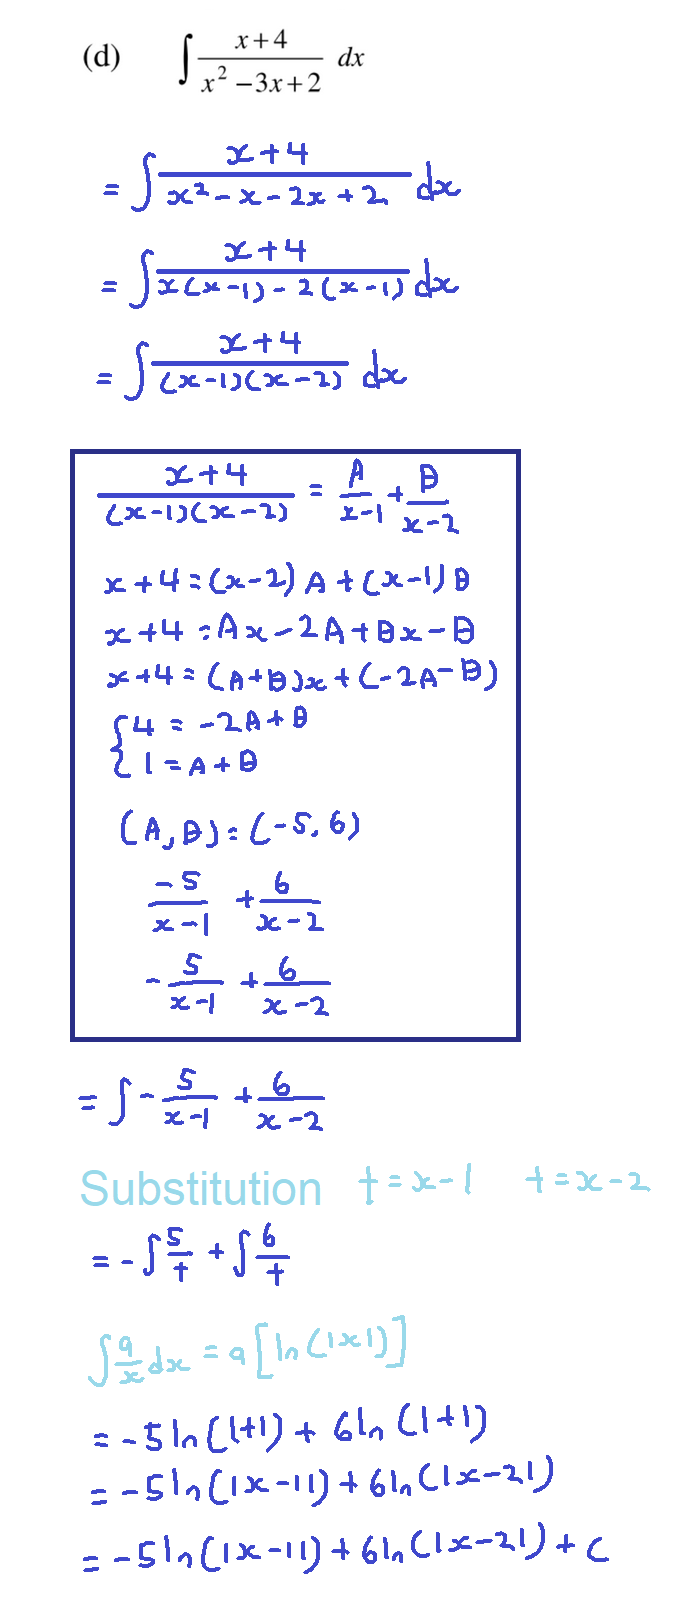 (d) ∫ (x+4)/(x² −3x+2) dx
= ∫ (x+4)/(x²-x-2x+2) dx
= ∫ (x+4)/(x(x-1)-2(x-1)) dx
= ∫ (x+4)/((x-1)(x-2)) dx
(x+4)/((x-1)(x-2)) = A/(x-1) + B/(x-2)
x+4=(x-2)A+(x-1)B
x+4=Ax-2A+Bx-B
x+4=(A+B)x+(-2A-B)
{4 = -2A+B
1=A+B
(A,B)=(-5,6)
-5/(x-1) + 6/(x-2)
-5/(x-1) + 6/(x-2)
= ∫-5/(x-1) + 6/(x-2)
Substitution t=x-1 t=x-2
= -∫5/t + ∫6/t
∫a/x dx = a[ln(|x|)]
= -5ln(|t|) + 6ln(|t|)
= -5ln(|x-1|) + 6ln(|x-2|)
= -5ln(|x-1|) + 6ln(|x-2|) + C